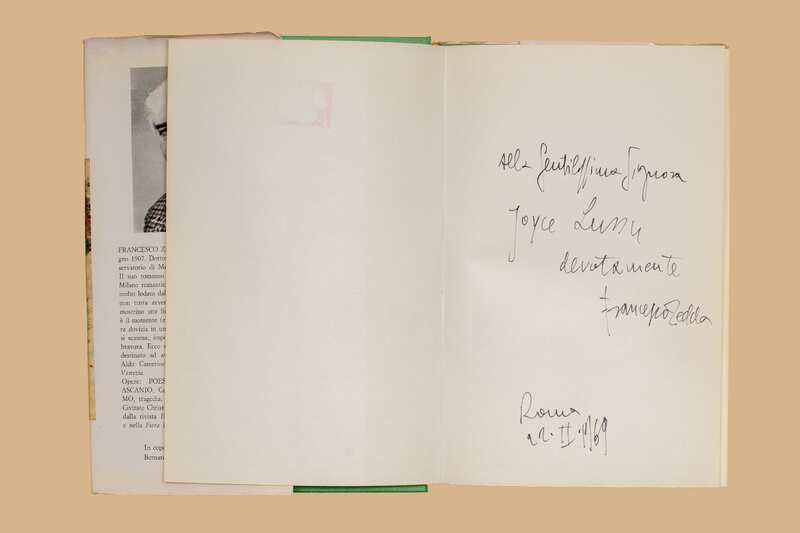 FRANCESCO Z
gno 1907. Dotto
servatorio di M
Il suo romanzo
Milano romantic
molto lodato dal
non torna avver
è il momento (e
ra dovizia in un
si scanna, imp
bravura. Ecco
destinato ad a
Aldo Camerino
Venezia.
Opere: POES
ASCANIO, C
MO, tragedia,
Civitate Christ
dalla rivista I
e nella Fiera
In cope
Bernar
alla Gentilissima Signora
Joyce Lussu
devotamente
Francesco Zedda
Roma
22·II·1969